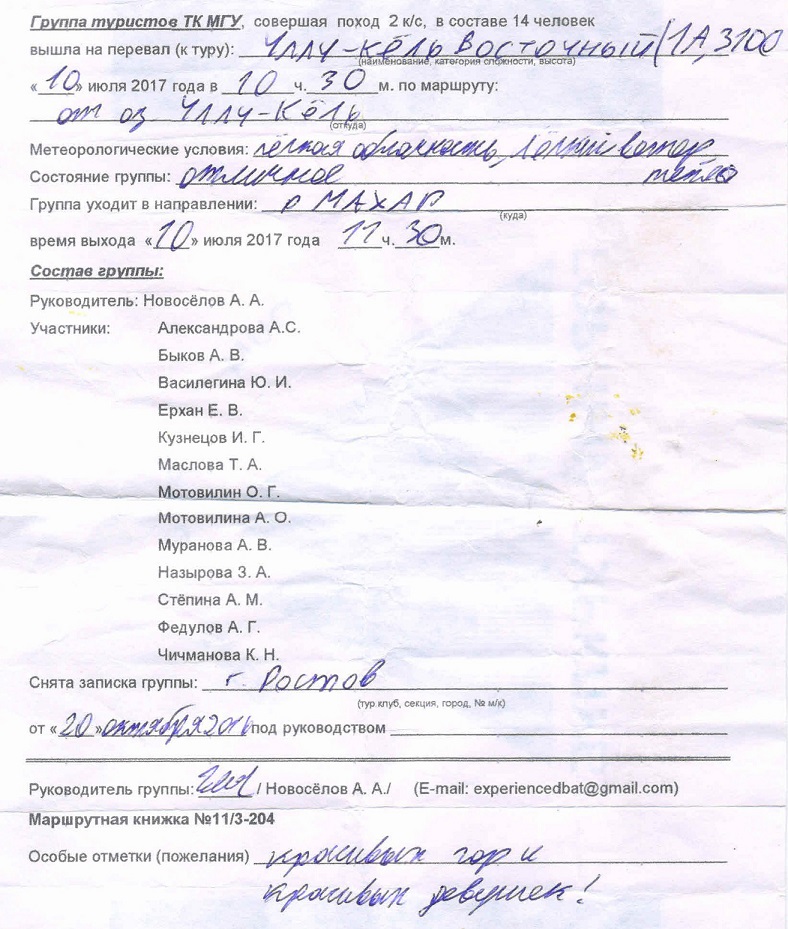 Группа туристов ТК МГУ, совершая поход 2 к/с, в составе 14 человек
вышла на перевал (к туру): Уллу-кёль Восточный (1А, 3100
(наименование, категория сложности, высота)
«10» июля 2017 года в 10 ч. 30 м. по маршруту:
от оз Уллу-Кёль
(откуда)
Метеорологические условия: лёгкая облачность, лёгкий ветер
Состояние группы: отличное тепло
Группа уходит в направлении: р МАХАР
(куда)
время выхода «10» июля 2017 года 11 ч. 30 м.
Состав группы:
Руководитель: Новосёлов А. А.
Участники: Александрова А.С.
Быков А. В.
Василегина Ю. И.
Ерхан Е. В.
Кузнецов И. Г.
Маслова Т. А.
Мотовилин О. Г.
Мотовилина А. О.
Муранова А. В.
Назырова З. А.
Стёпина А. М.
Федулов А. Г.
Чичманова К. Н.
Снята записка группы: г. Ростов
(тур.клуб, секция, город, № м/к)
от «20» октября 2016 под руководством
Руководитель группы: / Новосёлов А. А./ (E-mail: experiencedbat@gmail.com)
Маршрутная книжка №11/3-204
Особые отметки (пожелания) красивых гор и
красивых девушек!